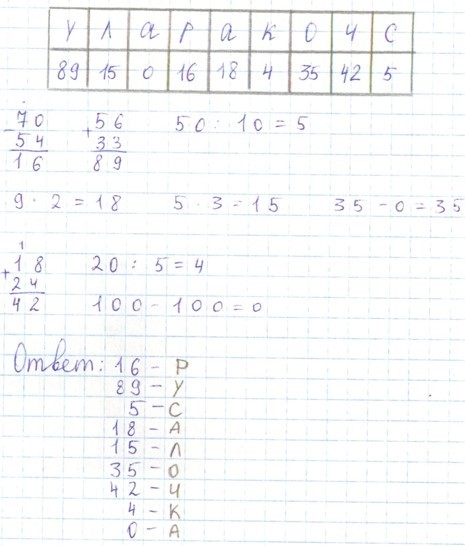 У Л а Р а К О Ч С
89 15 0 16 18 4 35 42 5
70 56 50 : 10 = 5
- 54 + 33
16 89
9 · 2 = 18 5 · 3 = 15 35 - 0 = 35
1
18 20 : 5 = 4
+ 24
42 100 - 100 = 0
Ответ: 16 - Р
89 - У
5 - С
18 - А
15 - Л
35 - О
42 - Ч
4 - К
0 - А